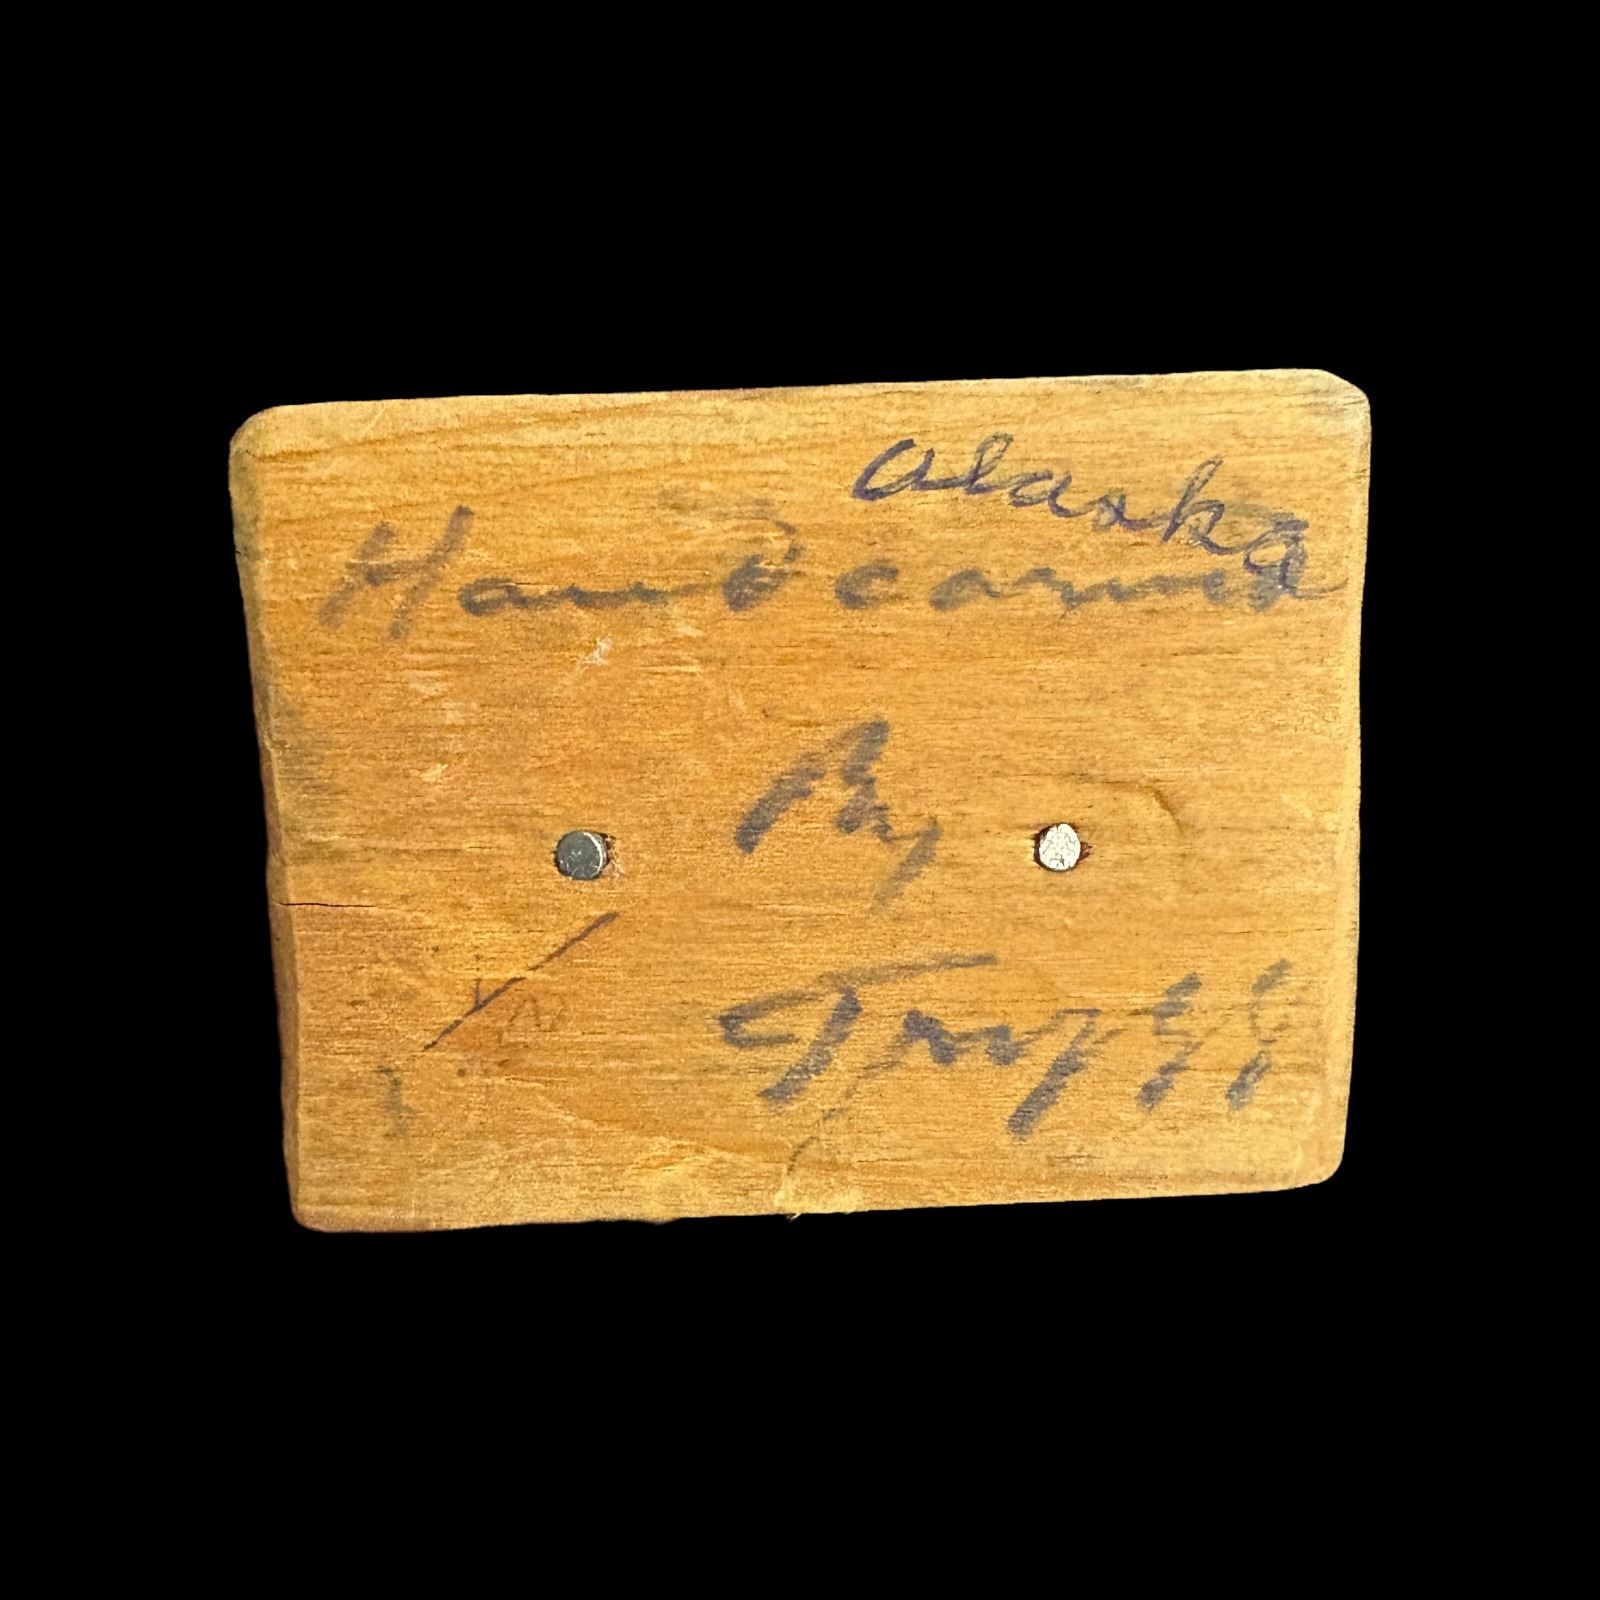 Alaska
Hand carved
By
Trygg